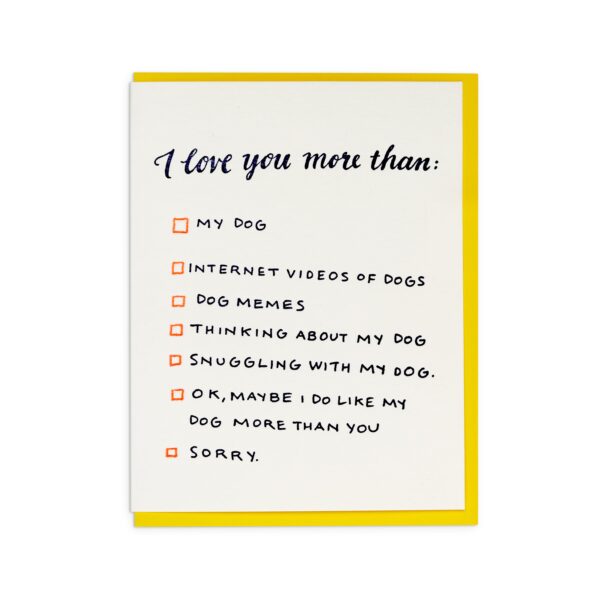 I love you more than:
MY DOG
INTERNET VIDEOS OF DOGS
DOG MEMES
THINKING ABOUT MY DOG
SNUGGLING WITH MY DOG.
OK, MAYBE I DO LIKE MY
DOG MORE THAN YOU
SORRY.